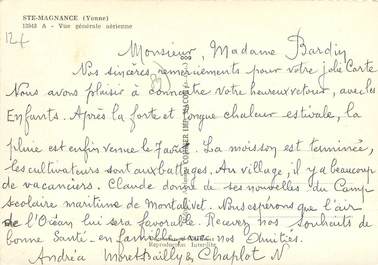 STE-MAGNANCE (Yonne)
13943 A - Vue générale aérienne
12f
Monsieur, Madame Bardin
Nos sincères remerciements pour votre jolie Carte
Nous avons plaisir à connaître votre heureux retour, avec les
Enfants. Après la forte et longue chaleur estivale, la
pluie est enfin venue le 7 août. La moisson est terminée,
les cultivateurs sont aux battages. Au village, il y a beaucoup
de vacanciers. Claude donne de ses nouvelles du Camp
scolaire maritime de Montalivet. Nous espérons que l'air
de l'Océan lui sera favorable. Recevez nos souhaits de
bonne Santé en famille avec nos Amitiés.
Reproduction Interdite
Andréa Montbailly & Chaplot N
COMBIER IMP. MACON